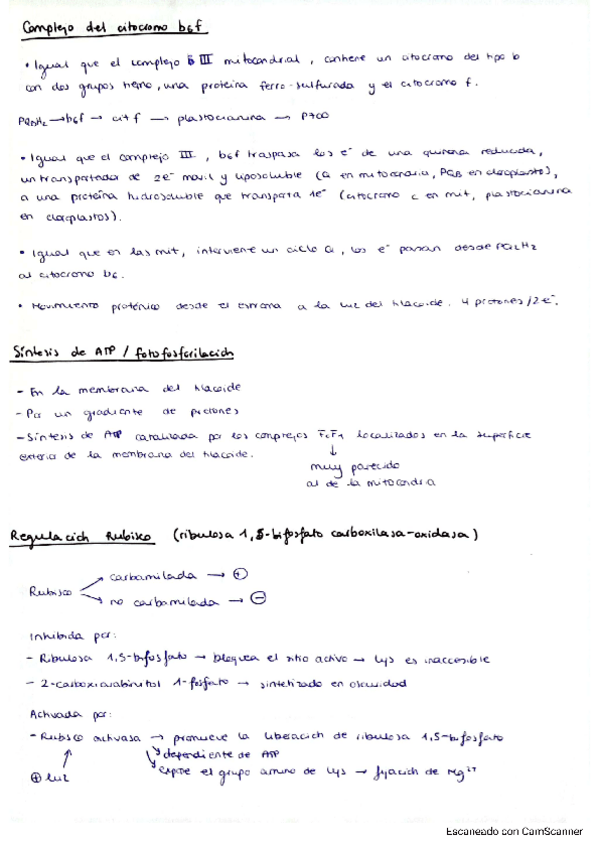 Complejo del citocromo b6f
• Igual que el complejo III mitocondrial, contiene un citocromo del tipo b
con dos grupos hemo, una proteína ferro-sulfurada y el citocromo f.
PQBH2 → b6f → cit f → plastocianina → P700
• Igual que el complejo III, b6f traspasa los e- de una quinona reducida,
un transportador de 2e- movil y liposoluble (Q en mitocondria, PQB en cloroplastos),
a una proteína hidrosoluble que transporta 1e- (citocromo c en mit, plastocianina
en cloroplastos).
• Igual que en las mit, interviene un ciclo Q, los e- pasan desde PQBH2
al citocromo b6.
• Movimiento protónico desde el estroma a la luz del tilacoide. 4 protones/2e-.
Síntesis de ATP / fotofosforilación
- En la membrana del tilacoide
- Por un gradiente de protones
- Síntesis de ATP catalizada por los complejos F0F1 localizados en la superficie
externa de la membrana del tilacoide.
↓
muy parecido
al de la mitocondria
Regulación Rubisco (ribulosa 1,5-bifosfato carboxilasa-oxidasa)
Rubisco
carbamilada → +
no carbamilada → -
Inhibida por:
- Ribulosa 1,5-bifosfato → bloquea el sitio activo → Lys es inaccesible
- 2-carboxiarabinitol 1-fosfato → sintetizado en oscuridad
Activada por:
- Rubisco activasa → promueve la liberación de ribulosa 1,5-bifosfato
dependiente de ATP
expone el grupo amino de Lys → fijación de Mg2+
+ luz
Escaneado con CamScanner